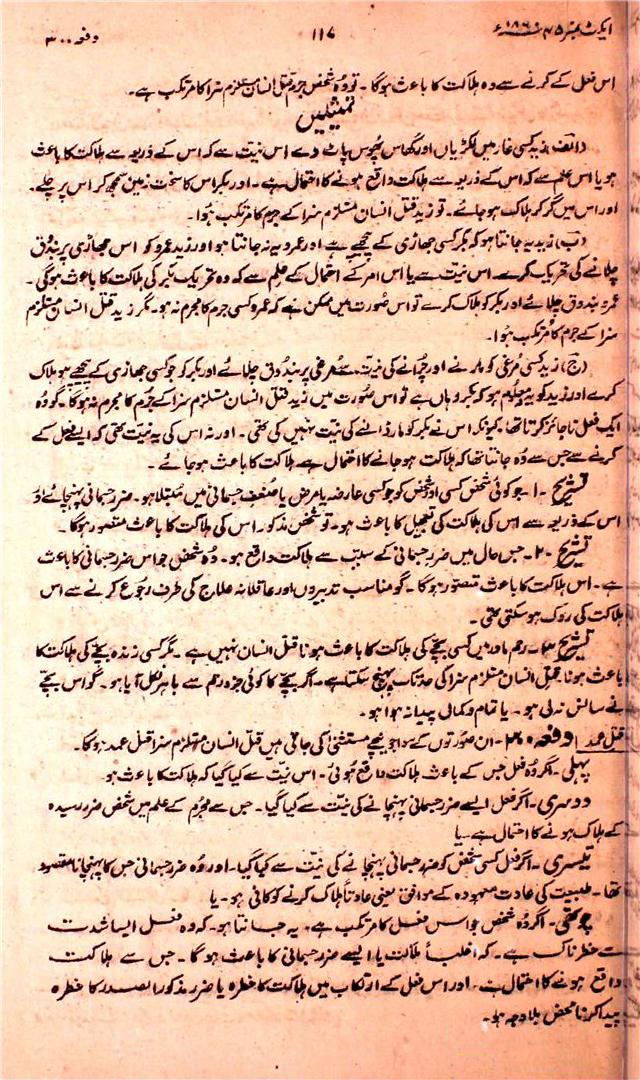 ایکٹ نمبر ۴۵ ۱۸۶۰ء ۱۱۷ دفعہ ۳۰۰
اس فعل کے کرنے سے وہ ہلاکت کا باعث ہوگا۔ تو وہ شخص جرم قتل انسان مستلزم سزا کا مرتکب ہے۔
تمثیلیں
(الف) زید کسی غار میں لکڑیاں اور گھاس پھوس پاٹ دے اس نیت سے کہ اس کے ذریعہ سے ہلاکت کا باعث
ہو یا اس علم سے کہ اس کے ذریعہ سے ہلاکت واقع ہونے کا احتمال ہے۔ اور بکر اس کا سخت زمین سمجھ کر اس پر چلے۔
اور اس میں گر کر ہلاک ہو جائے۔ تو زید قتل انسان مستلزم سزا کے جرم کا مرتکب ہوا۔
(ب) زید یہ جانتا ہو کہ بکر کسی جھاڑی کے پیچھے ہے اور عمرو یہ نہ جانتا ہو اور زید عمرو کو اس جھاڑی پر بندوق
چلانے کی تحریک کرے۔ اس نیت سے یا اس امر کے احتمال کے علم سے کہ وہ تحریک بکر کی ہلاکت کا باعث ہوگی۔
عمرو بندوق چلائے اور بکر کو ہلاک کرے تو اس صورت میں ممکن ہے کہ عمرو کسی جرم کا مجرم نہ ہو۔ مگر زید قتل انسان مستلزم
سزا کے جرم کا مرتکب ہوا۔
(ج) زید کسی مرغی کو مارنے اور چرانے کی نیت سے مرغی پر بندوق چلائے اور بکر کو جو کسی جھاڑی کے پیچھے ہو ہلاک
کرے اور زید کو یہ معلوم ہو کہ بکر وہاں ہے تو اس صورت میں زید قتل انسان مستلزم سزا کے جرم کا مجرم نہ ہوگا۔ گو وہ
ایک فعل ناجائز کرتا تھا۔ کیونکہ اس نے بکر کو مار ڈالنے کی نیت نہیں کی تھی۔ اور نہ اس کی یہ نیت تھی کہ ایسے فعل کے
کرنے سے جس سے وہ جانتا تھا کہ ہلاکت ہو جانے کا احتمال ہے ہلاکت کا باعث ہو جائے۔
تشریح ۔۱۔ جو کوئی شخص کسی اور شخص کو جو کسی عارضہ یا مرض یا ضعف جسمانی میں مبتلا ہو۔ ضرر جسمانی پہنچائے اور
اس کے ذریعہ سے اس کی ہلاکت کی تعجیل کا باعث ہو۔ تو شخص مذکور۔ اس کی ہلاکت کا باعث متصور ہوگا۔
تشریح ۔۲۔ جس حال میں ضرر جسمانی کے سبب سے ہلاکت واقع ہو۔ وہ شخص جو اس ضرر جسمانی کا باعث
ہے۔ اس ہلاکت کا باعث متصور ہوگا۔ گو مناسب تدبیروں اور عاقلانہ علاج کی طرف رجوع کرنے سے اس
ہلاکت کی روک ہو سکتی تھی۔
تشریح ۳۔ رحم مادر میں کسی بچے کی ہلاکت کا باعث ہونا قتل انسان نہیں ہے۔ مگر کسی زندہ بچے کی ہلاکت کا
باعث ہونا۔ قتل انسان مستلزم سزا کی حد تک پہنچ سکتا ہے۔ اگر بچے کا کوئی جزو رحم سے باہر نکل آیا ہو۔ گو اس بچے
نے سانس نہ لی ہو۔ یا تمام و کمالی پیدا نہ ہوا ہو۔
قتل عمد دفعہ ۳۰۰۔ ان صورتوں کے سوا جو نیچے مستثنیٰ کی جاتی ہیں قتل انسان مستلزم سزا قتل عمد ہوگا۔
پہلی۔ اگر وہ فعل جس کے باعث ہلاکت واقع ہوئی۔ اس نیت سے کیا گیا کہ ہلاکت کا باعث ہو
دوسری۔ اگر فعل ایسے ضرر جسمانی پہنچانے کی نیت سے کیا گیا۔ جس سے مجرم کے علم میں شخص ضرر رسیدہ
کے ہلاک ہونے کا احتمال ہے۔ یا
تیسری۔ اگر فعل کسی شخص کو ضرر جسمانی پہنچانے کی نیت سے کیا گیا۔ اور وہ ضرر جسمانی جس کا پہنچانا مقصود
تھا۔ طبیعت کی عادت معہودہ کے موافق یعنی عادتاً ہلاک کرنے کو کافی ہو۔ یا
چوتھی۔ اگر وہ شخص جو اس فعل کا مرتکب ہے۔ یہ جانتا ہو۔ کہ وہ فعل ایسا شدت
سے خطرناک ہے۔ کہ اغلباً ہلاکت یا ایسے ضرر جسمانی کا باعث ہوگا۔ جس سے ہلاکت
واقع ہونے کا احتمال ہے۔ اور اس فعل کے ارتکاب میں ہلاکت کا خطرہ یا ضرر مذکور الصدر کا خطرہ
پیدا کرنا محض بلاوجہ ہو۔